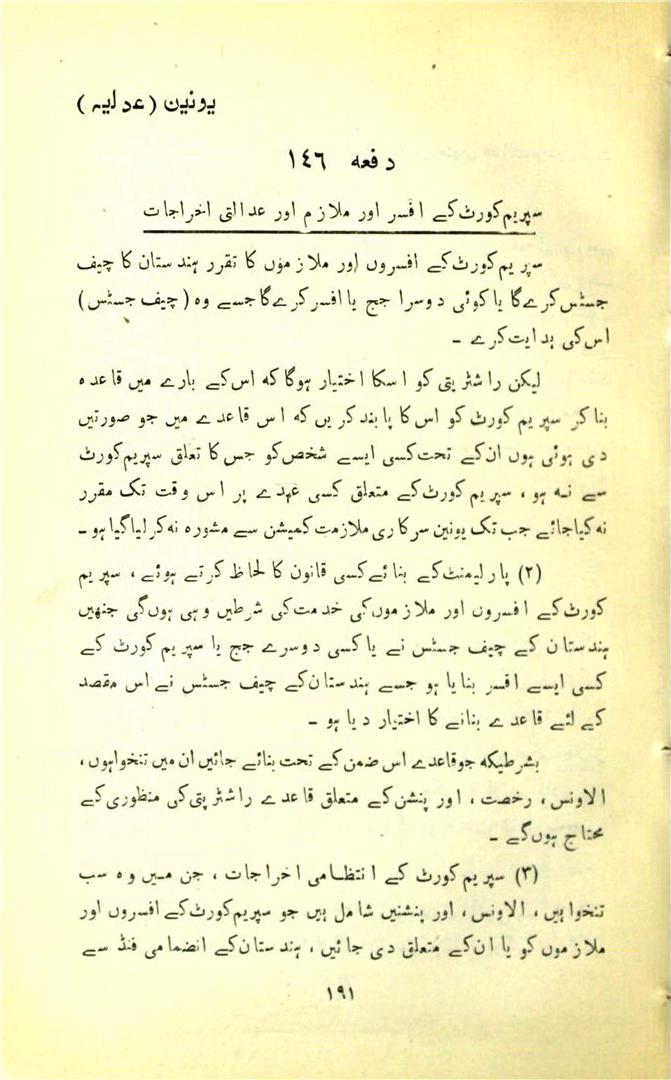 یونین (عدلیہ)
دفعہ ۱۴۶
سپریم کورٹ کے افسر اور ملازم اور عدالتی اخراجات
سپریم کورٹ کے افسروں اور ملازموں کا تقرر ہندستان کا چیف
جسٹس کرے گا یا کوئی دوسرا جج یا افسر کرے گا جسے وہ (چیف جسٹس)
اس کی ہدایت کرے ۔
لیکن راشٹرپتی کو اسکا اختیار ہوگا کہ اس کے بارے میں قاعدہ
بنا کر سپریم کورٹ کو اس کا پابند کریں کہ اس قاعدے میں جو صورتیں
دی ہوئی ہوں ان کے تحت کسی ایسے شخص کو جس کا تعلق سپریم کورٹ
سے نہ ہو ، سپریم کورٹ کے متعلق کسی عہدے پر اس وقت تک مقرر
نہ کیا جائے جب تک یونین سرکاری ملازمت کمیشن سے مشورہ نہ کر لیا گیا ہو ۔
(۲) پارلیمنٹ کے بنائے کسی قانون کا لحاظ کرتے ہوئے ، سپریم
کورٹ کے افسروں اور ملازموں کی خدمت کی شرطیں وہی ہوں گی جنھیں
ہندستان کے چیف جسٹس نے یا کسی دوسرے جج یا سپریم کورٹ کے
کسی ایسے افسر بنایا ہو جسے ہندستان کے چیف جسٹس نے اس مقصد
کے لئے قاعدے بنانے کا اختیار دیا ہو ۔
بشرطیکہ جو قاعدے اس ضمن کے تحت بنائے جائیں ان میں تنخواہوں ،
الاونس ، رخصت ، اور پنشن کے متعلق قاعدے راشٹرپتی کی منظوری کے
محتاج ہوں گے ۔
(۳) سپریم کورٹ کے انتظامی اخراجات ، جن میں وہ سب
تنخواہیں ، الاونس ، اور پنشنیں شامل ہیں جو سپریم کورٹ کے افسروں اور
ملازموں کو یا ان کے متعلق دی جائیں ، ہندستان کے انضمامی فنڈ سے
۱۹۱